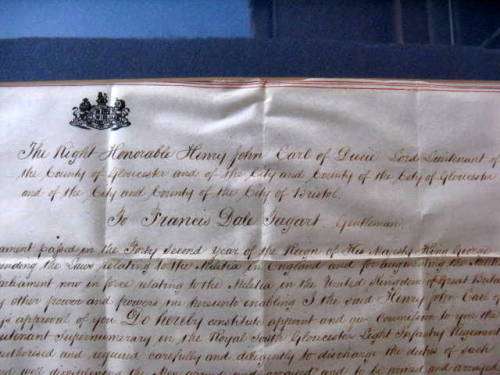 The Right Honorable Henry John Earl of Ducie Lord Lieutenant
the County of Gloucester and of the City and County of the City of Gloucester
and of the City and County of the City of Bristol.
To Francis Dale Gent.
ament passed in the Forty Second Year of the Reign of His Majesty King George
ending the Laws relating to the Militia in England and for augmenting the Militia
Parliament now in force relating to the Militia in the United Kingdom of Great Brit
y other power and powers me hereunto enabling I the said Henry John Earl
approval of you Do hereby constitute appoint and you to be
ieutenant Supernumerary in the Royal South Gloucester Light Infantry Regiment
uthorised and required carefully and diligently to discharge the duties of such
and to be armed and arrayed